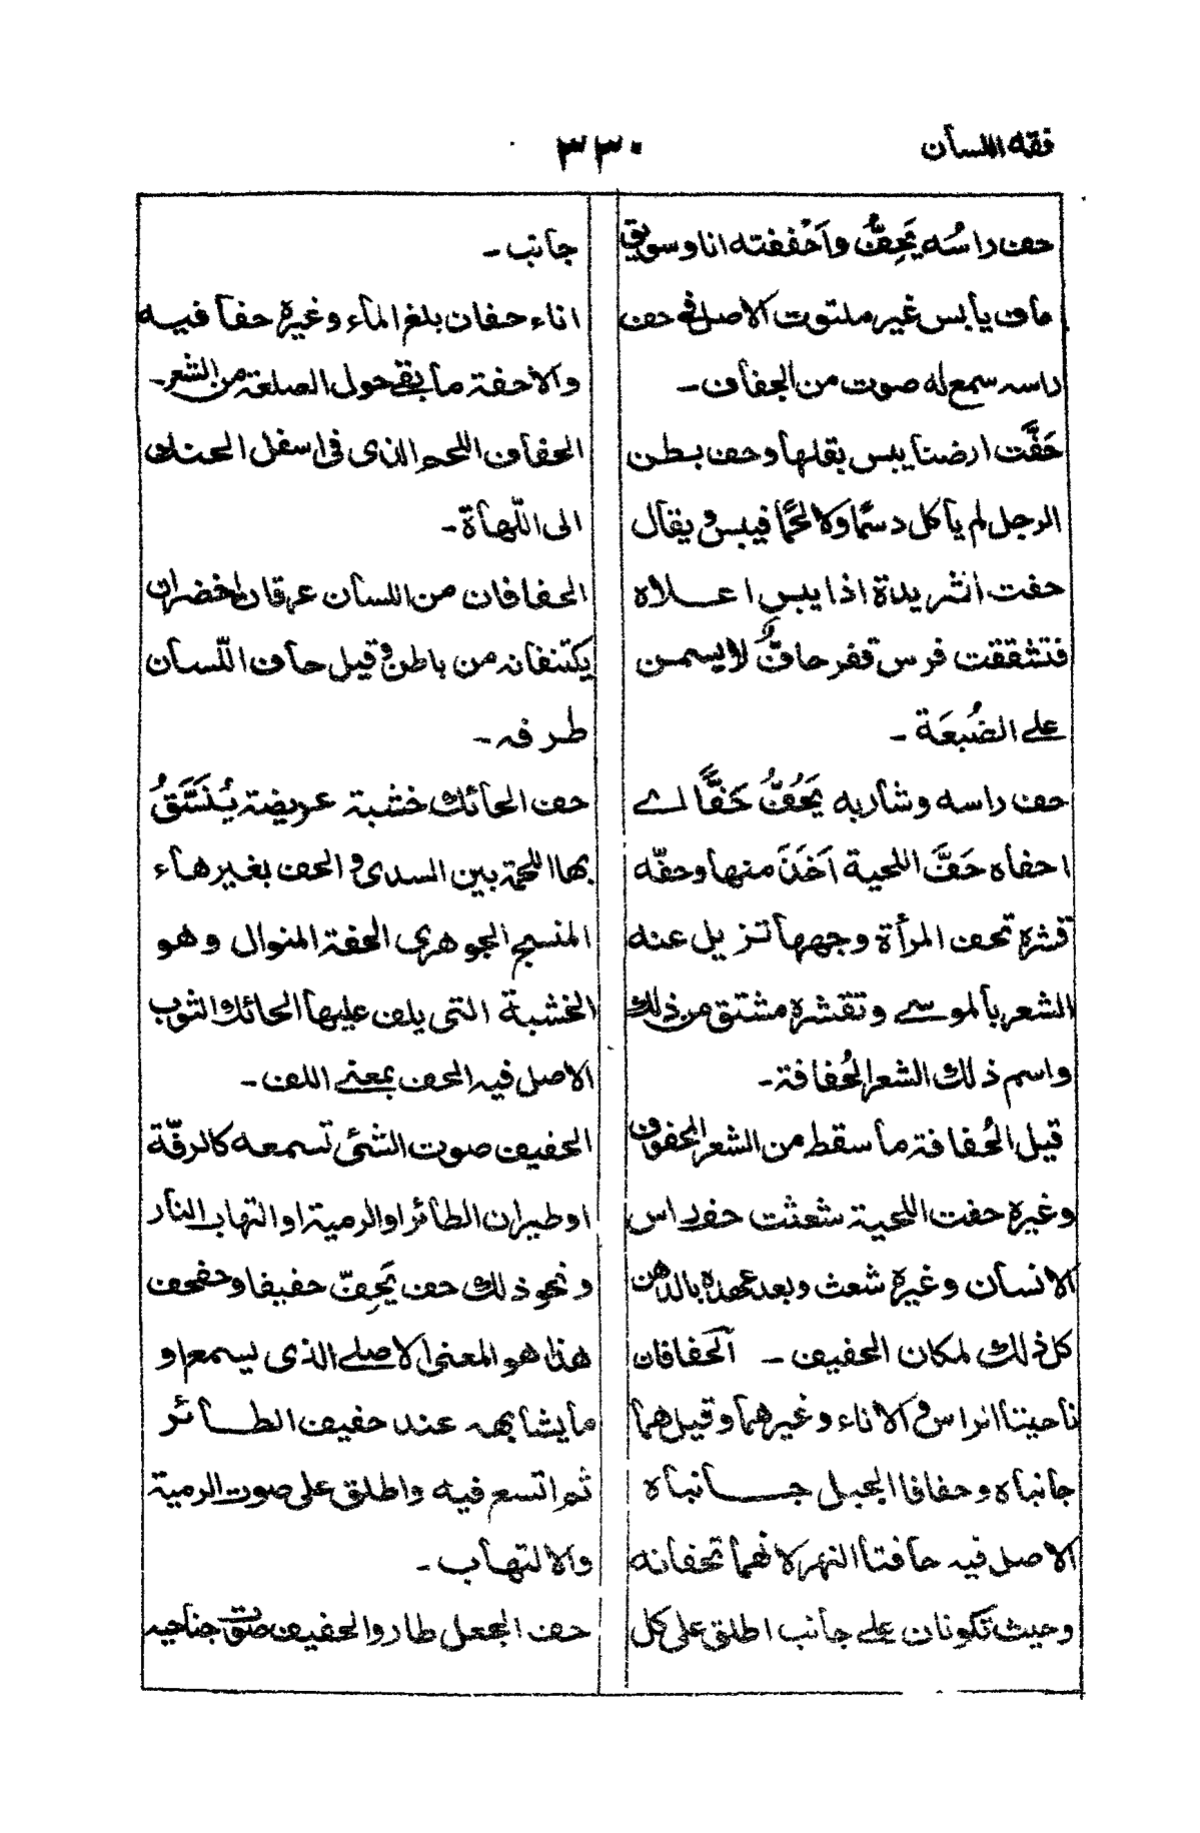 فقه اللسان
٣٣٠
حف راسُه يَحِفُّ واَحْففته انا وسويق
حاف يابس غير ملتوت الاصل في حف
راسه سمع له صوت من الجفاف -
حَفَّت ارضنا يبس بقلها وحف بطن
الرجل لم يأكل دسمًا ولا لحمًا فيبس ويقال
حفت الثريدة اذا يبس اعلاه
فتشققت فرس قفر حافٌّ لا يسمن
على الضُبعَة -
حف راسه وشاربه يَحُفُّ حَفًّا اے
احفاه حَفَّ اللحية اَخَذَ منها وحفّه
قشره تحف المرأة وجهها تزيل عنه
الشعر بالموسى وتقشره مشتق من ذلك
واسم ذلك الشعر الحُفافة -
قيل الحُفافة ما سقط من الشعر المحفوف
وغيره حفت اللحية شعثت حف راس
الانسان وغيره شعث وبعد عهده بالدهن
كل ذلك لمكان الحفيف - اَلحَفافان
ناحيتا الراس و الاناء وغيرهما وقيل هما
جانباه وحفافا الجبل جانباه
الاصل فيه حافتا النهر لانهما تحفانه
وحيث تكونان على جانب اطلق على كل
جانب -
اناء حفان بلغ الماء وغيره حفا فيه
والاحفة ما بقى حول الصلعة من الشعر -
الحفاف اللحم الذى فى اسفل الحنك
الى اللّهاة -
الحفافان من اللسان عرقان اخضران
يكتنفانه من باطن وقيل حاف اللّسان
طرفه -
حف الحائك خشبة عريضة يُنَسَّقُ
بها اللحمة بين السدى و الحف بغير هاء
المنسج الجوهرى الحفة المنوال وهو
الخشبة التى يلف عليها الحائك الثوب
الاصل فيه الحف بمعنى اللف -
الحفيف صوت الشئ تسمعه كالرقّة
او طيران الطائر او الرمية او التهاب النار
ونحو ذلك حف يَحِفّ حفيفا وحفحف
هذا هو المعنى الاصلى الذى يسمع او
ما يشابهه عند حفيف الطائر
ثم اتسع فيه واطلق على صوت الرمية
والالتهاب -
حف الجعل طار والحفيف صوت جناحيه